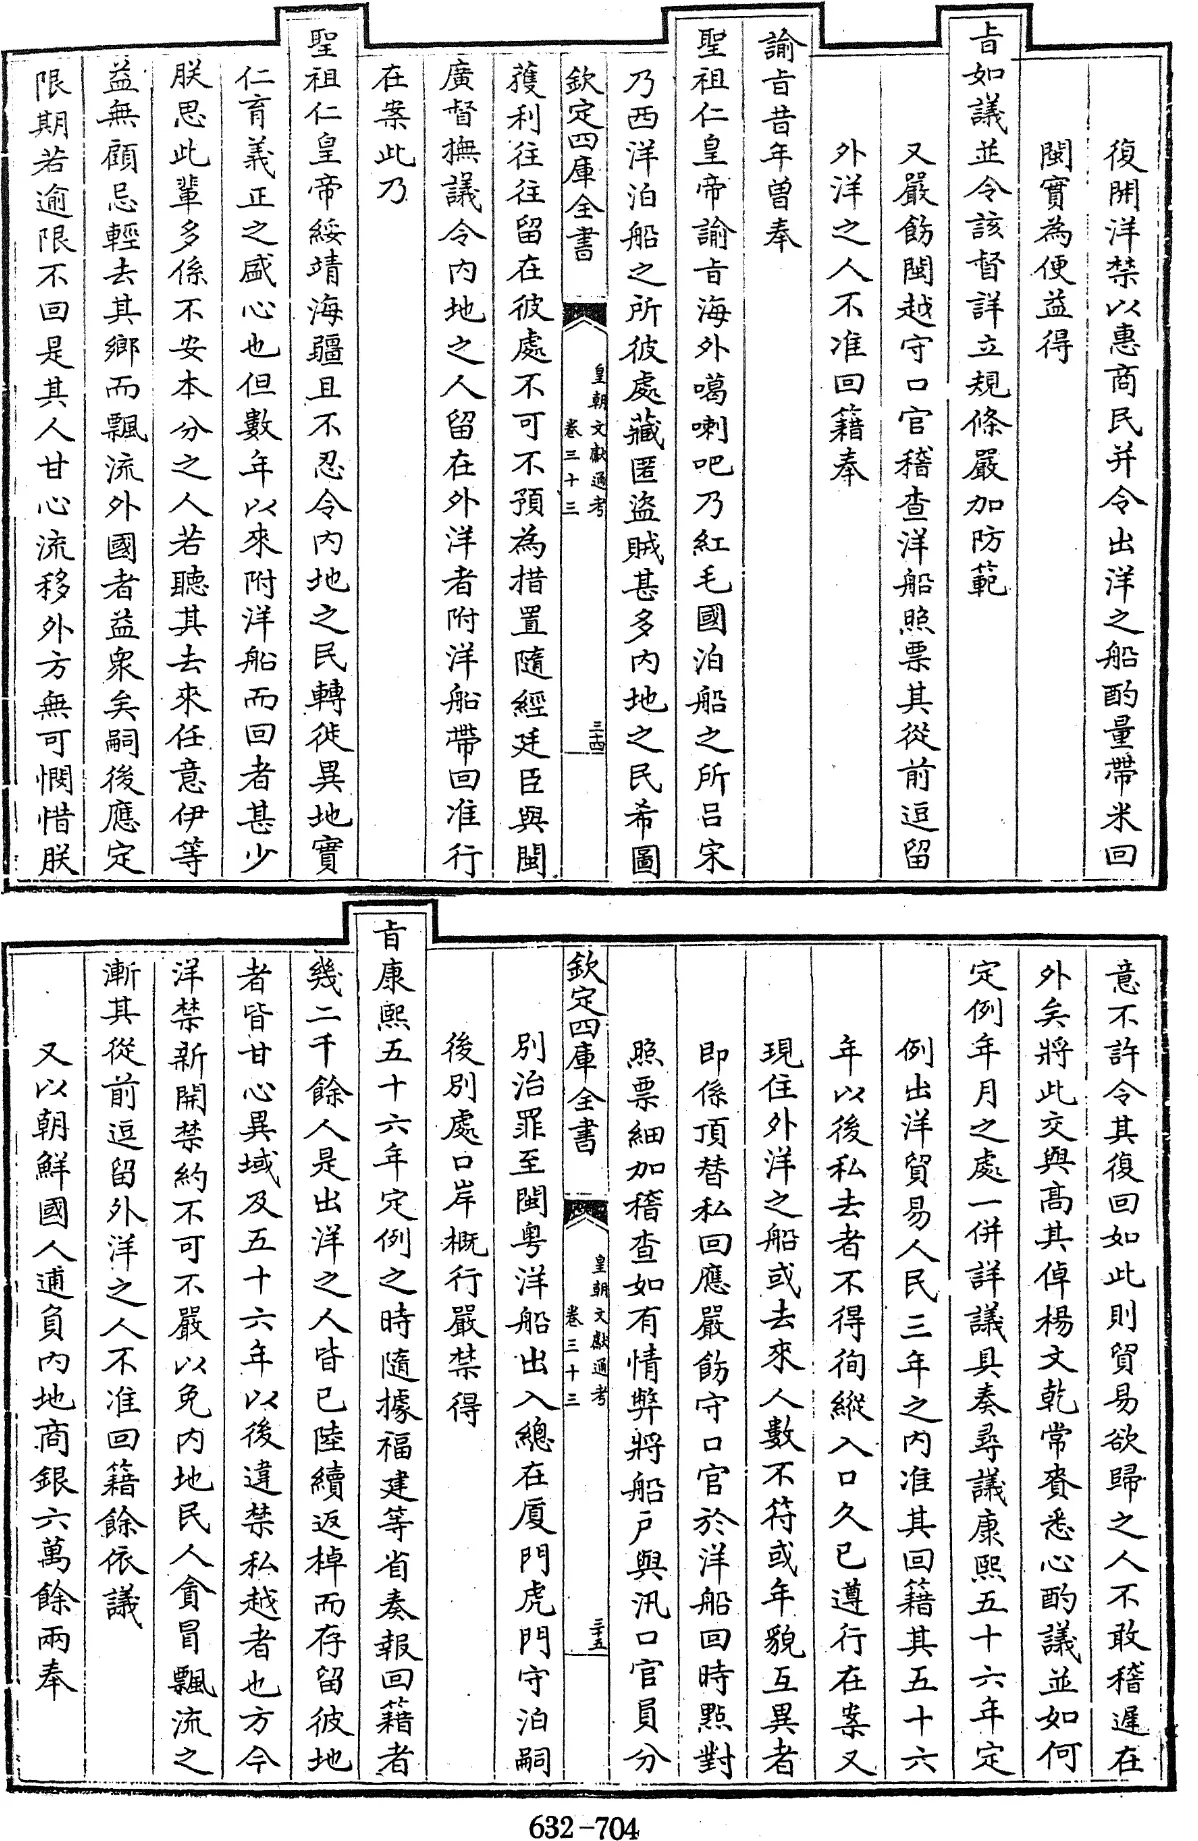 復開洋禁以惠商民并令出洋之船酌量帶米回
閩實為便益得
旨如議並令該督詳立規條嚴加防範
又嚴飭閩越守口官稽查洋船照票其從前逗留
外洋之人不准回籍奉
諭旨昔年曽奉
聖祖仁皇帝諭旨海外噶喇吧乃紅毛國泊船之所吕宋
乃西洋泊船之所彼處藏匿盜賊甚多内地之民希圖
欽定四庫全書
皇朝文獻通考
卷三十三
三十四
獲利往往留在彼處不可不預為措置隨經廷臣與閩
廣督撫議令内地之人留在外洋者附洋船帶回准行
在案此乃
聖祖仁皇帝綏靖海疆且不忍令内地之民轉徙異地實
仁育義正之盛心也但數年以來附洋船而回者甚少
朕思此輩多係不安本分之人若聽其去來任意伊等
益無顧忌輕去其鄉而飄流外國者益衆矣嗣後應定
限期若逾限不回是其人甘心流移外方無可憫惜朕
意不許令其復回如此則貿易欲歸之人不敢稽遲在
外矣將此交與高其倬楊文乾常賚悉心酌議並如何
定例年月之處一併詳議具奏尋議康熙五十六年定
例出洋貿易人民三年之内准其回籍其五十六
年以後私去者不得徇縱入口久已遵行在案又
現住外洋之船或去來人數不符或年貌互異者
即係頂替私回應嚴飭守口官於洋船回時點對
照票細加稽查如有情弊將船户與汛口官員分
欽定四庫全書
皇朝文獻通考
卷三十三
三十五
別治罪至閩粤洋船出入總在厦門虎門守泊嗣
後別處口岸概行嚴禁得
旨康熙五十六年定例之時隨據福建等省奏報回籍者
幾二千餘人是出洋之人皆已陸續返棹而存留彼地
者皆甘心異域及五十六年以後違禁私越者也方今
洋禁新開禁約不可不嚴以免内地民人貪冒飄流之
漸其從前逗留外洋之人不准回籍餘依議
又以朝鮮國人逋負内地商銀六萬餘兩奉
632-704